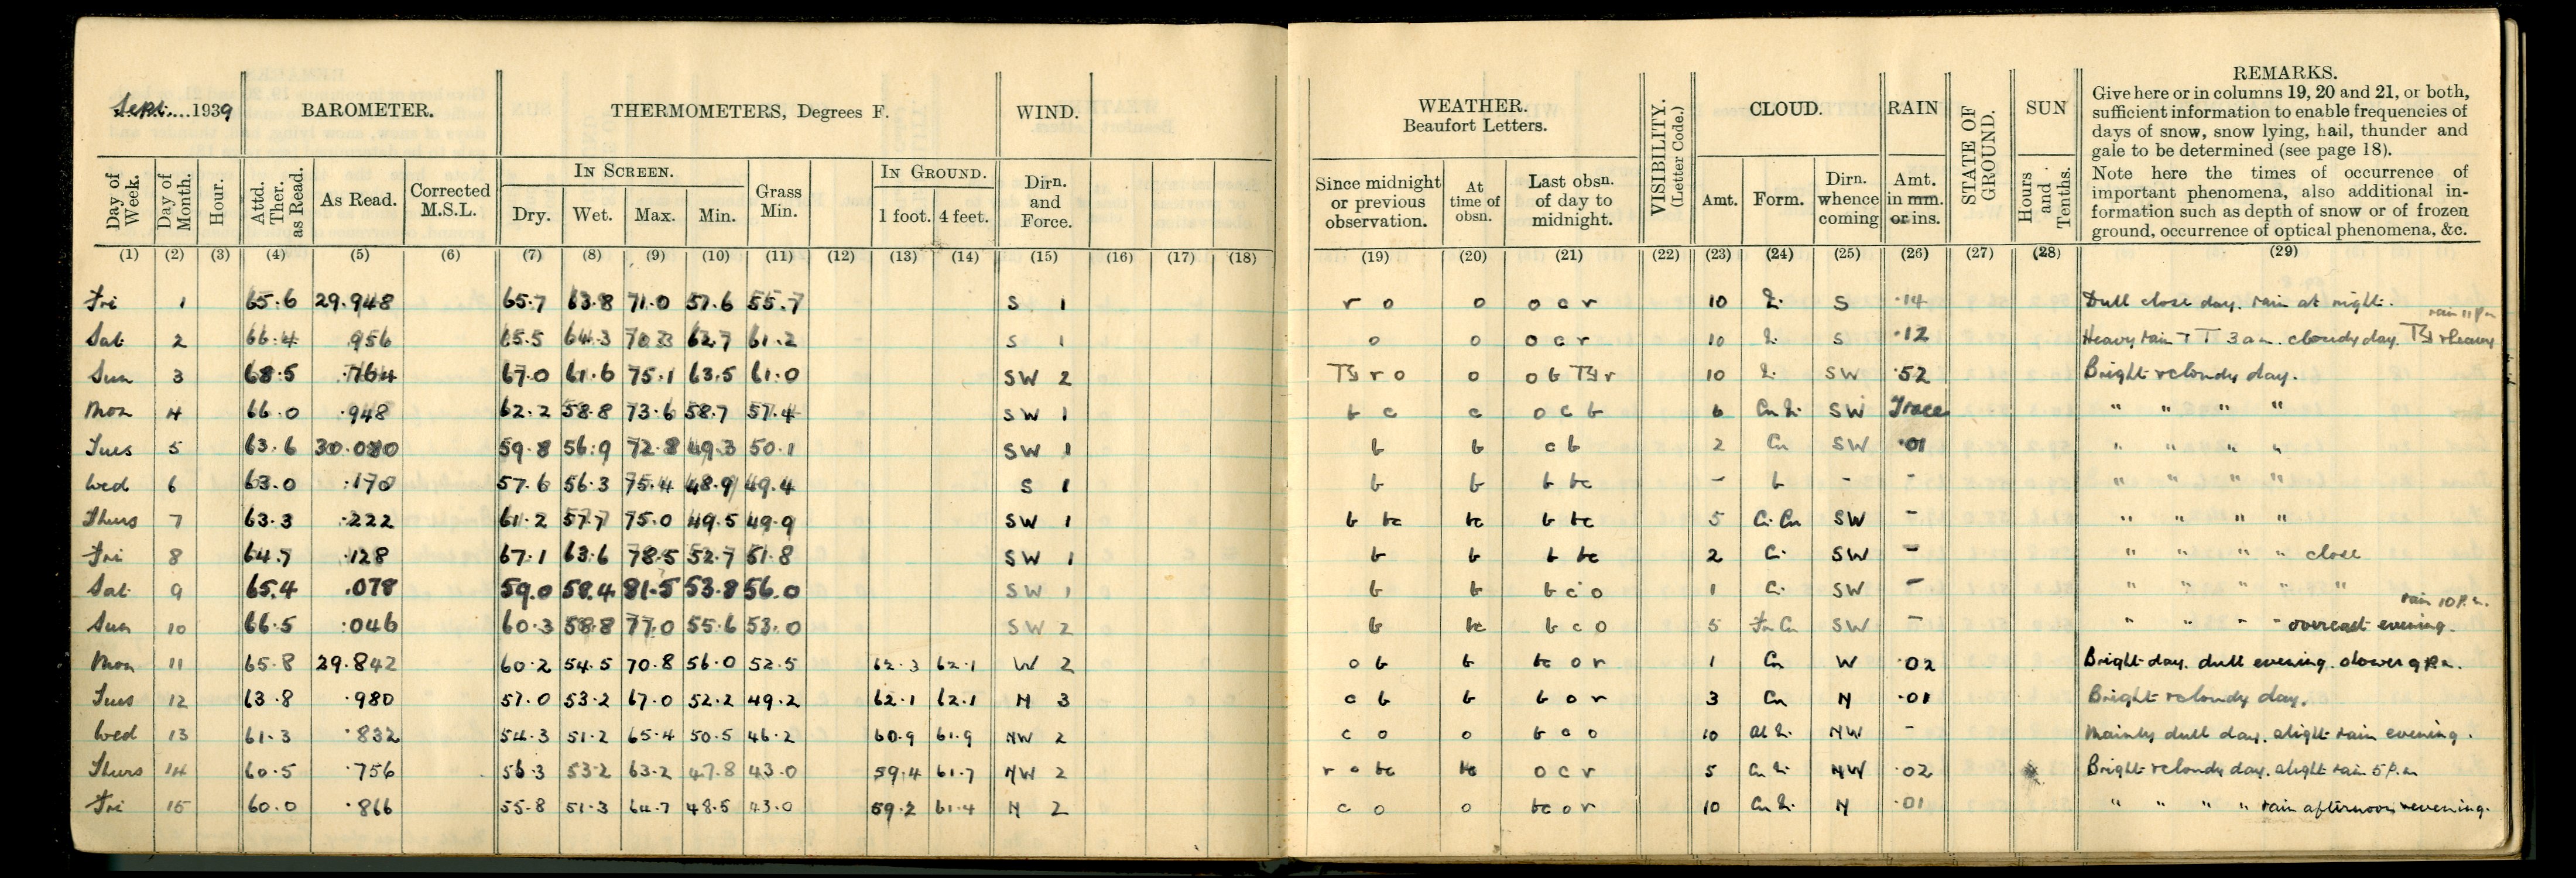 Sept. 1939 BAROMETER. THERMOMETERS, Degrees F. WIND.
IN SCREEN. IN GROUND.
Day of Week. Day of Month. Hour. Attd. Ther. as Read. As Read. Corrected M.S.L. Dry. Wet. Max. Min. Grass Min. 1 foot. 4 feet. Dirn. and Force.
(1) (2) (3) (4) (5) (6) (7) (8) (9) (10) (11) (12) (13) (14) (15) (16) (17) (18)
Fri 1 65.6 29.948 65.7 63.8 71.0 57.6 55.7 S 1
Sat 2 66.4 956 65.5 64.3 62.7 61.2 S 1
Sun 3 68.5 .764 67.0 61.6 75.1 63.5 61.0 SW 2
Mon 4 66.0 .948 62.2 58.8 73.6 58.7 57.4 SW 1
Tues 5 63.6 30.080 59.8 56.9 72.8 49.3 50.1 SW 1
Wed 6 63.0 .170 57.6 56.3 75.4 48.9 49.4 S 1
Thurs 7 63.3 .222 61.2 57.7 75.0 49.5 49.9 SW 1
Fri 8 64.7 .128 67.1 63.6 78.5 52.7 51.8 SW 1
Sat 9 65.4 .078 59.0 58.4 81.5 53.8 56.0 SW 1
Sun 10 66.5 .046 60.3 58.8 77.0 55.6 53.0 SW 2
Mon 11 65.8 29.842 60.2 54.5 70.8 56.0 52.5 62.3 62.1 W 2
Tues 12 63.8 .980 57.0 53.2 67.0 52.2 49.2 62.1 62.1 N 3
Wed 13 61.3 .832 54.3 51.2 65.4 50.5 46.2 60.9 61.9 NW 2
Thurs 14 60.5 .756 56.3 53.2 63.2 47.8 43.0 59.4 61.7 NW 2
Fri 15 60.0 .866 55.8 51.3 64.7 48.5 43.0 59.2 61.4 N 2
WEATHER. Beaufort Letters. VISIBILITY. (Letter Code.) CLOUD. RAIN STATE OF GROUND. SUN REMARKS.
Give here or in columns 19, 20 and 21, or both,
sufficient information to enable frequencies of
days of snow, snow lying, hail, thunder and
gale to be determined (see page 18).
Note here the times of occurrence of
important phenomena, also additional in-
formation such as depth of snow or of frozen
ground, occurrence of optical phenomena, &c.
Since midnight or previous observation. At time of obsn. Last obsn. of day to midnight. Amt. Form. Dirn. whence coming Amt. in mm. or ins. Hours and Tenths.
(19) (20) (21) (22) (23) (24) (25) (26) (27) (28) (29)
r o o o c r 10 S .14 Dull close day. rain at night.
rain 11 P.m
o o o c r 10 S .12 Heavy rain T T 3 a.m. cloudy day. r heavy
r o o o b r 10 SW .52 Bright & cloudy day.
b c c o c b 6 SW Trace " " " "
b b c b 2 Cu SW .01 " " " "
b b b bc - b - - " " " "
b bc bc b bc 5 Ci Cu SW - " " " "
b b b bc 2 Ci SW - " " " " close
b b b c o 1 Ci SW - " " " " "
rain 10 P.m.
b bc b c o 5 Fr Cu SW - " " " " overcast evening.
o b b bc o r 1 Cu W .02 Bright day. dull evening. slower 9 P.m.
c b b b o r 3 Cu N .01 Bright & cloudy day.
c o o b c o 10 NW - Mainly dull day. slight rain evening.
r o bc bc o c r 5 NW .02 Bright & cloudy day. slight rain 5 P.m
c o o bc o r 10 N .01 " " " " rain afternoon & evening.